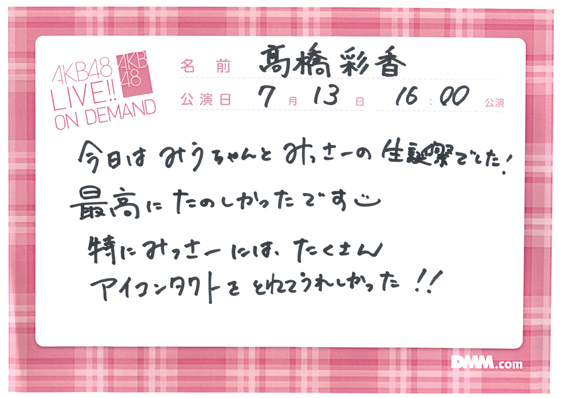 AKB48
LIVE!!
ON DEMAND
AKB
48
名前 髙橋彩香
公演日 7月13日 16:00公演
今日はみうちゃんとみっさーの生誕祭でした!
最高にたのしかったです
特にみっさーには、たくさん
アイコンタクトをとれてうれしかった!!
DMM.com